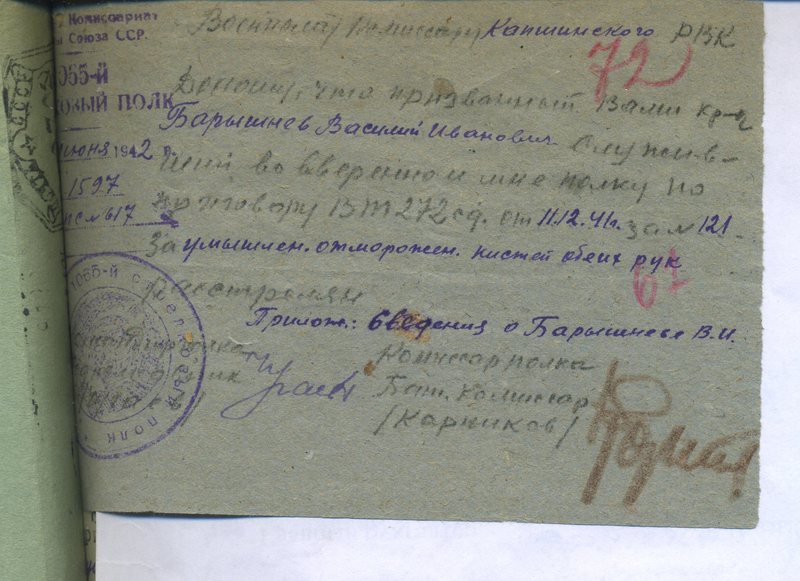 Комиссариат
Союза ССР.
1065-й
ПОЛК
июня 1942 г.
1597
617
Военному Комиссару Капшинского РВК
72
Доношу, что призванный Вами кр-ц
Барышнев Василий Иванович служив-
ший во вверенном мне полку по
приговору ВТ 272 сд. от 11.12.41г. за № 121
За умышлен. отморожен. кистей обеих рук
расстрелян
61
Прилож.: Сведения о Барышневе В.И.
Комиссар полка
Бат. Комиссар
/Карпиков/
1065-й стрелковый полк
СССР